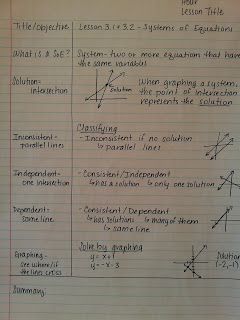 Hour
Lesson Title
Title/Objective Lesson 3.1 + 3.2 - Systems of Equations
What is a SoE? System - two or more equation that have
the same variables
Solution - intersection
Solution
When graphing a system,
the point of intersection
represents the solution
Classifying
Inconsistent - parallel lines
- Inconsistent if no solution
↳ parallel lines
Independent - one intersection
- Consistent/Independent
↳ has a solution ↳ only one solution
Dependent - same line
- Consistent/Dependent
↳ has solutions ↳ many of them
↳ same line
Solve by graphing
Graphing - see where/if the lines cross
y = x+1
y = -x-3
Solution
(-2,-1)
Summary: